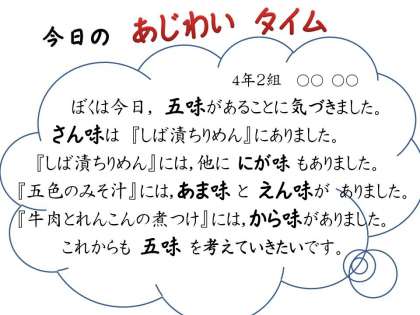 今日の あじわい タイム
4年2組 ○○ ○○
ぼくは今日，五味があることに気づきました。
さん味は『しば漬ちりめん』にありました。
『しば漬ちりめん』には，他に にが味 もありました。
『五色のみそ汁』には，あま味 と えん味が ありました。
『牛肉とれんこんの煮つけ』には，から味がありました。
これからも 五味 を考えていきたいです。